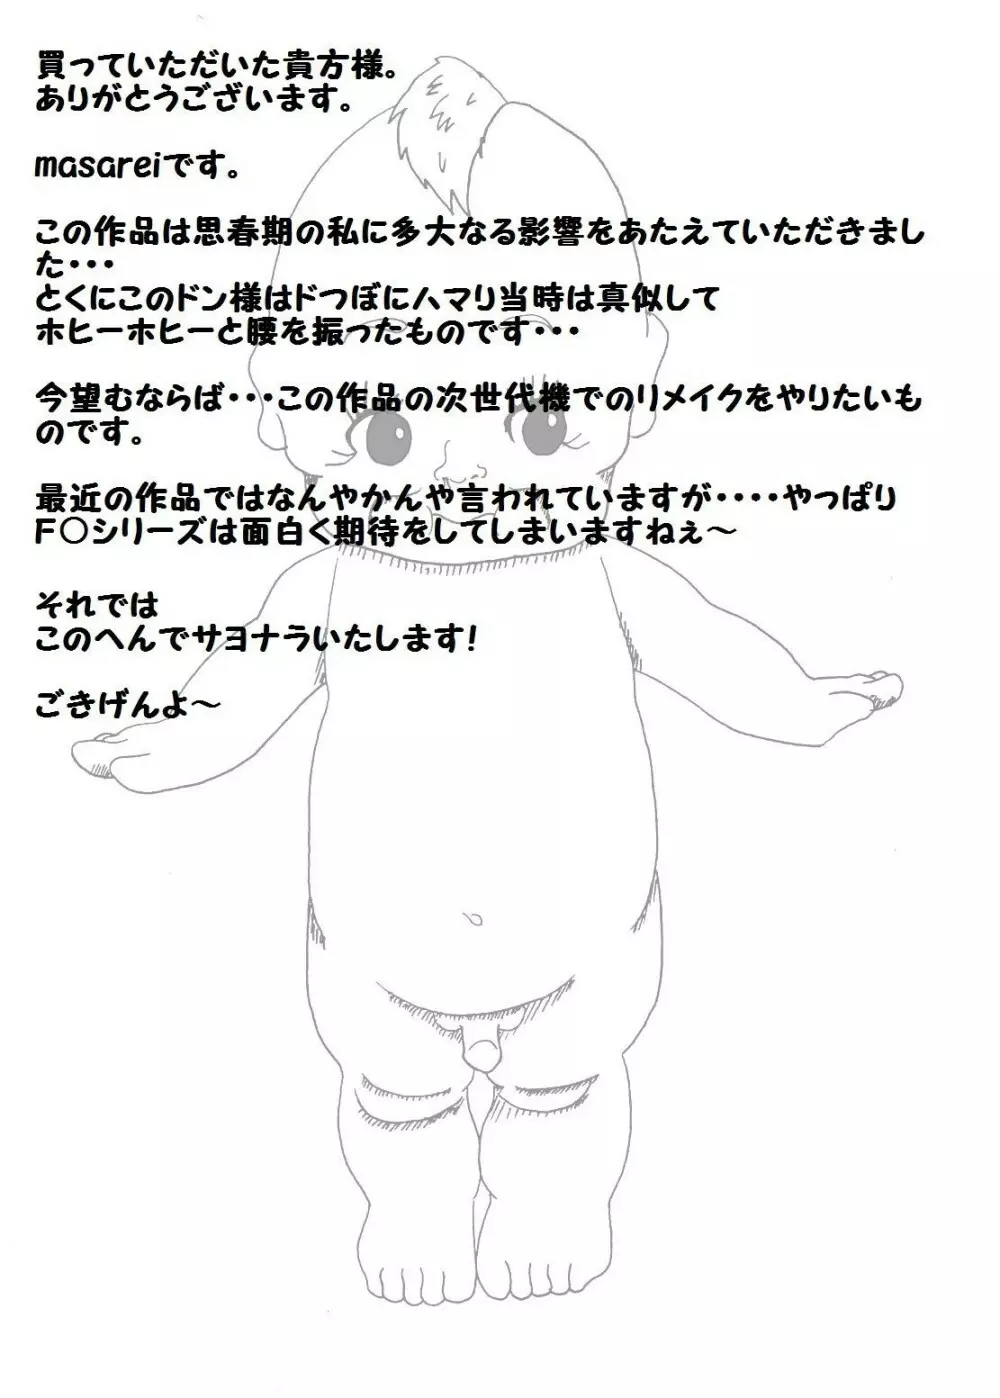 買っていただいた貴方様。
ありがとうございます。
masareiです。
この作品は思春期の私に多大なる影響をあたえていただきまし
た・・・
とくにこのドン様はドつぼにハマり当時は真似して
ホヒーホヒーと腰を振ったものです・・・
今望むならば・・・この作品の次世代機でのリメイクをやりたいも
のです。
最近の作品ではなんやかんや言われていますが・・・・やっぱり
F〇シリーズは面白く期待をしてしまいますねぇ～
それでは
このへんでサヨナラいたします！
ごきげんよ～